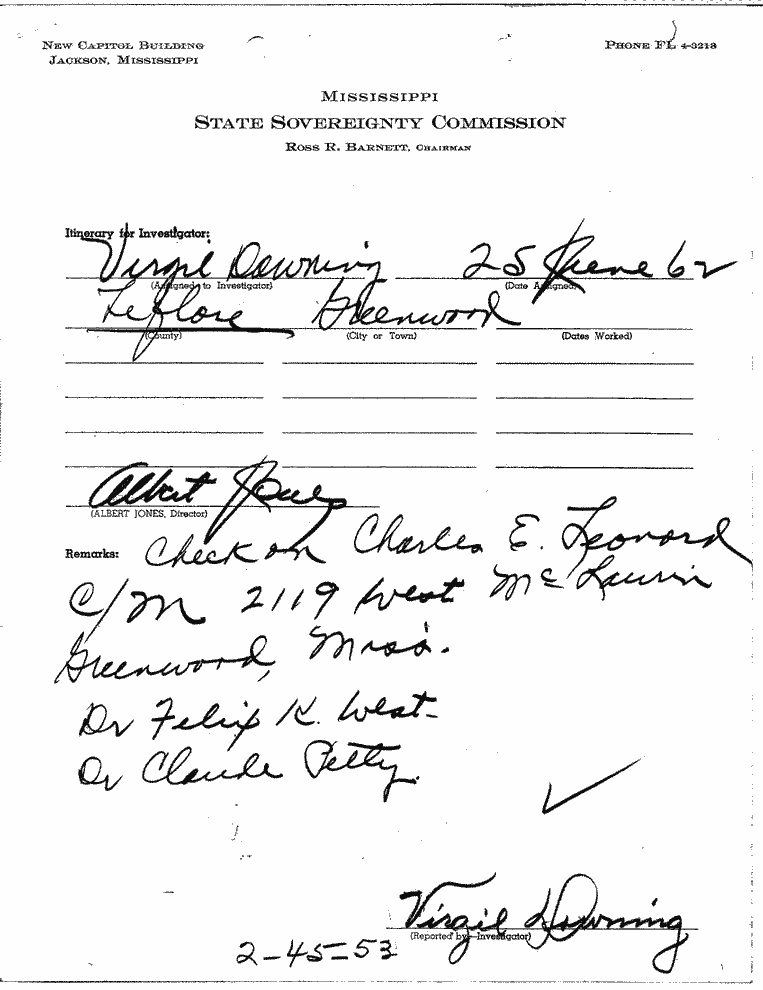 NEW CAPITOL BUILDING
JACKSON, MISSISSIPPI
PHONE FL 4-3218
MISSISSIPPI
STATE SOVEREIGNTY COMMISSION
ROSS R. BARNETT, CHAIRMAN
Itinerary for Investigator:
Virgil Downing 25 June 62
(Assigned to Investigator) (Date Assigned)
Leflore Greenwood
(County) (City or Town) (Dates Worked)
Albert Jones
(ALBERT JONES, Director)
Remarks: Check on Charles E. Leonard
C/M 2119 West McLaurin
Greenwood, Miss.
Dr Felix K. West
Dr Claude Petty.
Virgil Downing
(Reported by—Investigator)
2-45-53